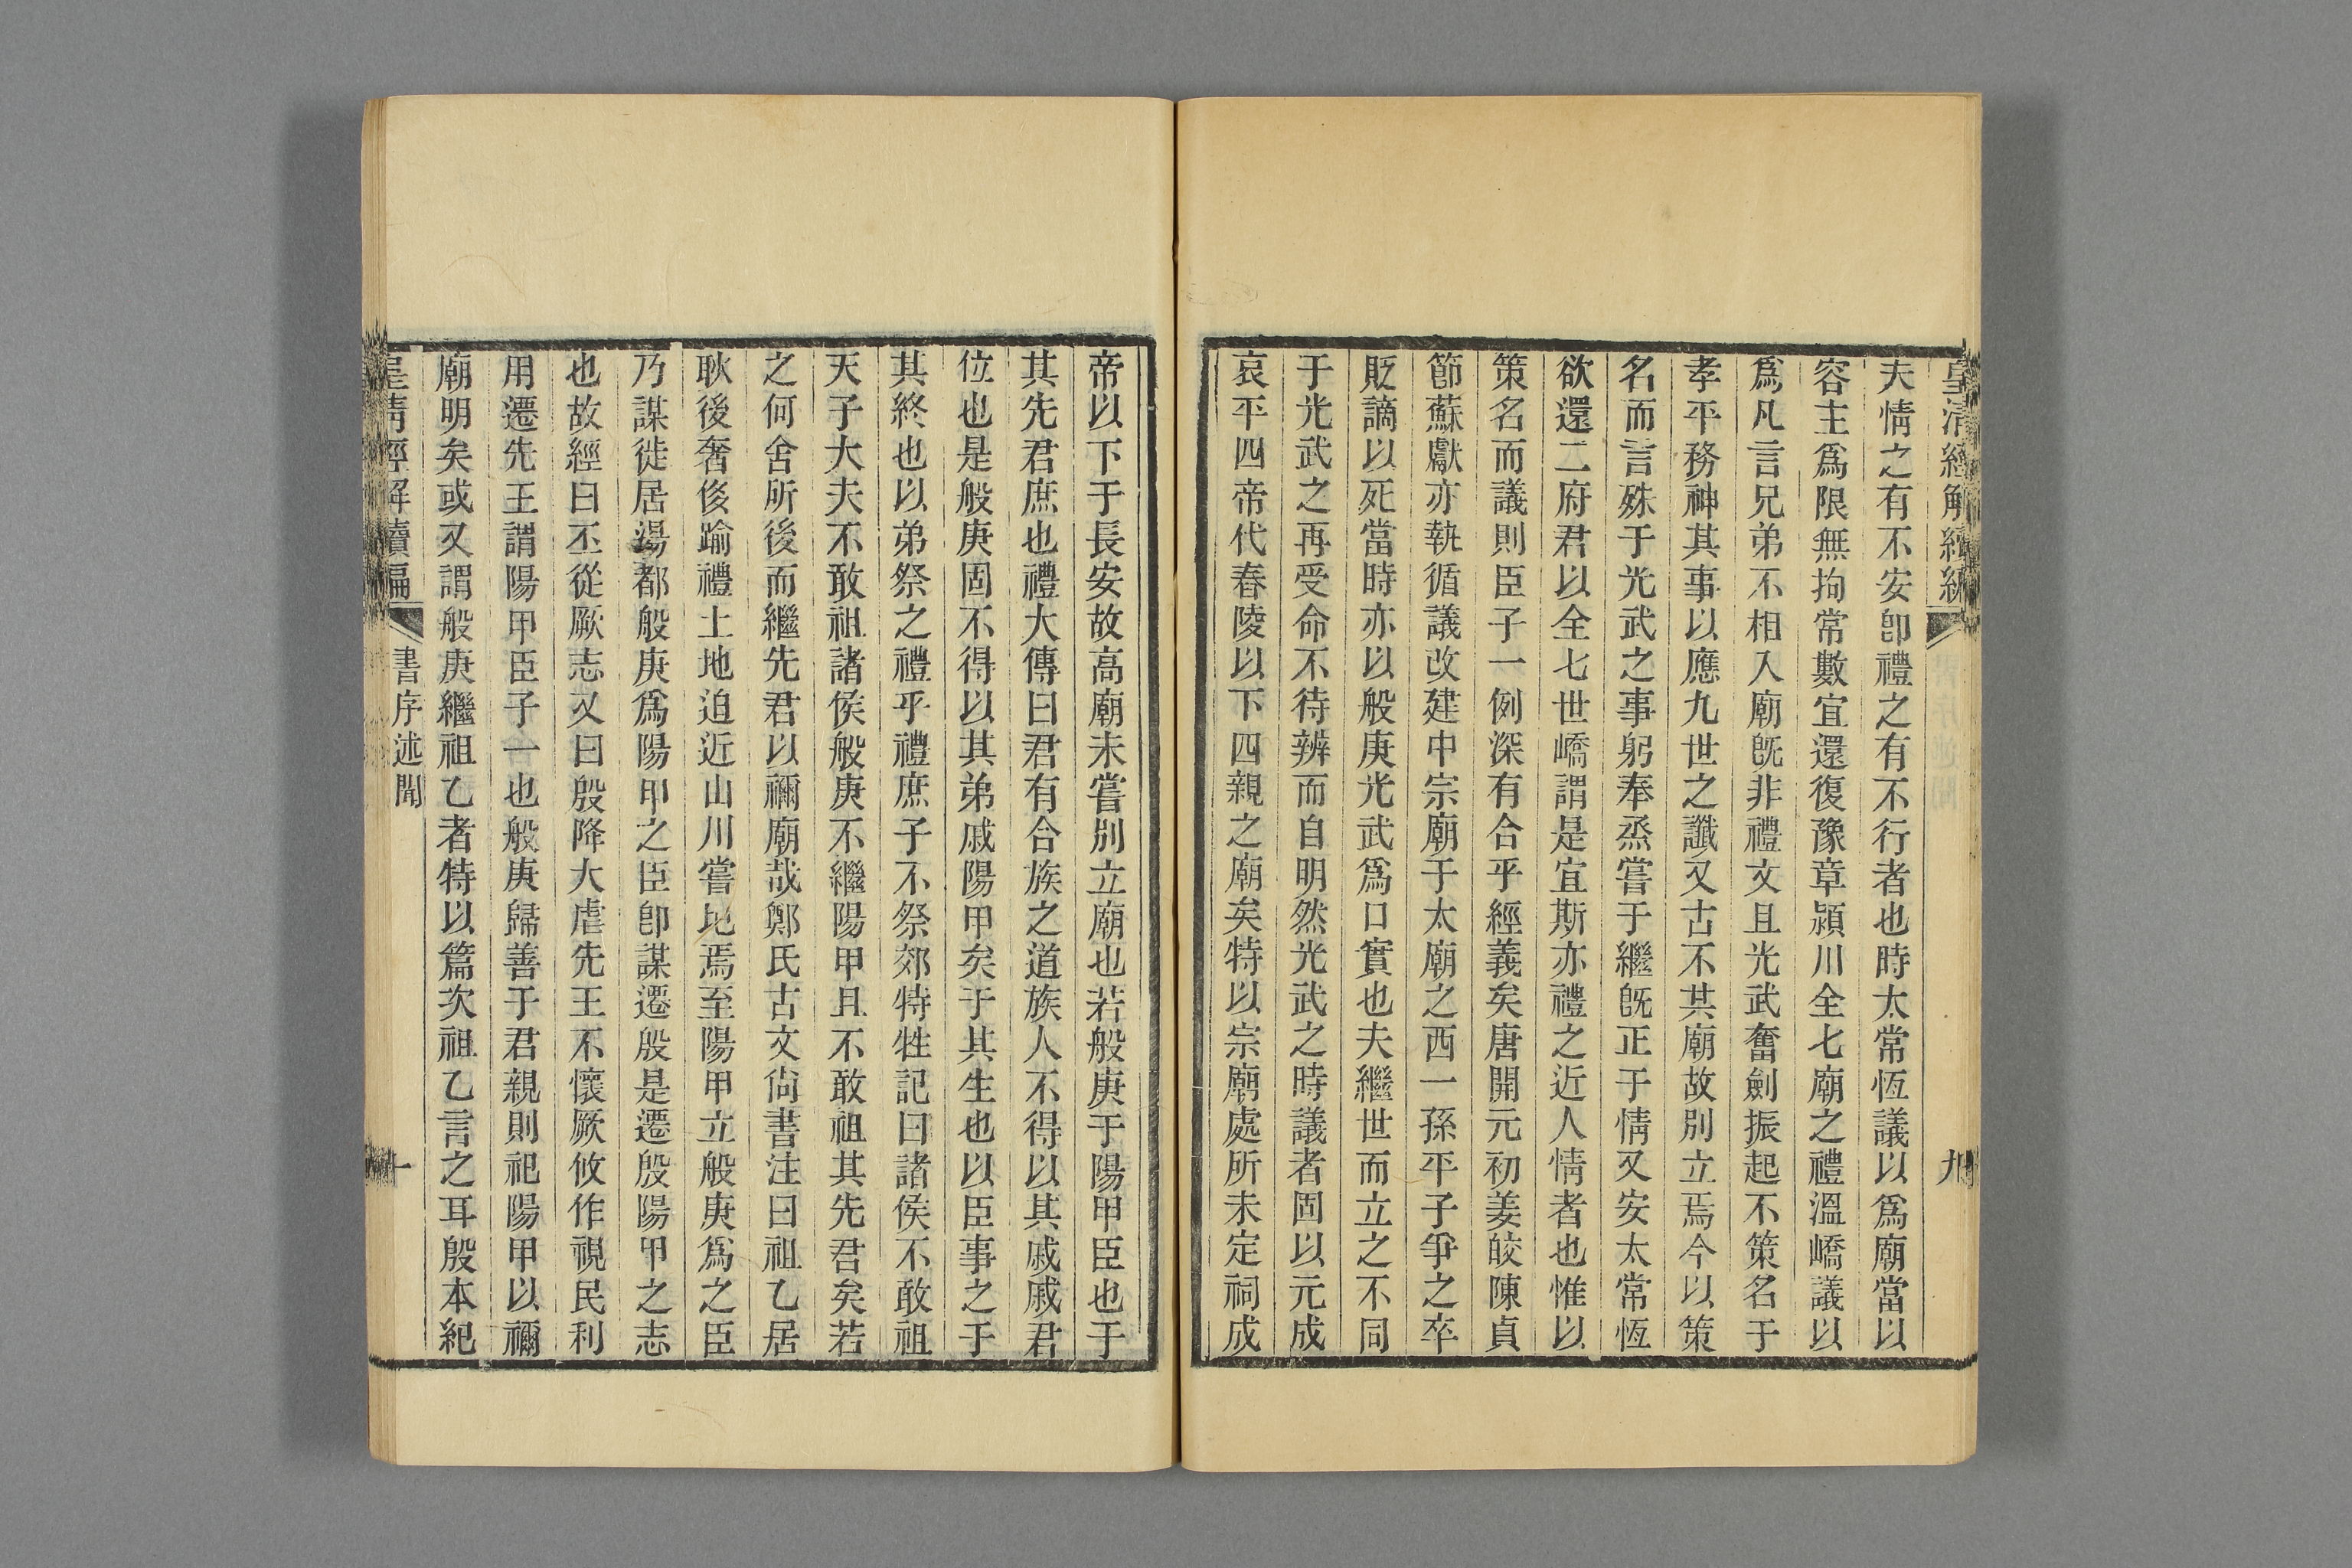 皇清經解續編
九
夫情之有不安卽禮之有不行者也時太常恆議以爲廟當以
容主爲限無拘常數宜還復豫章潁川全七廟之禮溫嶠議以
爲凡言兄弟不相入廟旣非禮文且光武奮劍振起不策名于
孝平務神其事以應九世之讖又古不其廟故別立焉今以策
名而言殊于光武之事躬奉烝嘗于繼旣正于情又安太常恆
欲還二府君以全七世嶠謂是宜斯亦禮之近人情者也惟以
策名而議則臣子一例深有合乎經義矣唐開元初姜皎陳貞
節蘇獻亦執循議改建中宗廟于太廟之西一孫平子爭之卒
貶謫以死當時亦以般庚光武爲口實也夫繼世而立之不同
于光武之再受命不待辨而自明然光武之時議者固以元成
哀平四帝代舂陵以下四親之廟矣特以宗廟處所未定祠成
帝以下于長安故高廟未嘗別立廟也若般庚于陽甲臣也于
其先君庶也禮大傳曰君有合族之道族人不得以其戚戚君
位也是般庚固不得以其弟戚陽甲矣于其生也以臣事之于
其終也以弟祭之禮乎禮庶子不祭郊特牲記曰諸侯不敢祖
天子大夫不敢祖諸侯般庚不繼陽甲且不敢祖其先君矣若
之何舍所後而繼先君以禰廟哉鄭氏古文尙書注曰祖乙居
耿後奢侈踰禮土地迫近山川嘗圮焉至陽甲立般庚爲之臣
乃謀徙居湯都般庚爲陽甲之臣卽謀遷殷是遷殷陽甲之志
也故經曰丕從厥志又曰殷降大虐先王不懷厥攸作視民利
用遷先王謂陽甲臣子一也般庚歸善于君親則祀陽甲以禰
廟明矣或又謂般庚繼祖乙者特以篇次祖乙言之耳殷本紀
皇清經解續編
書序述聞
十